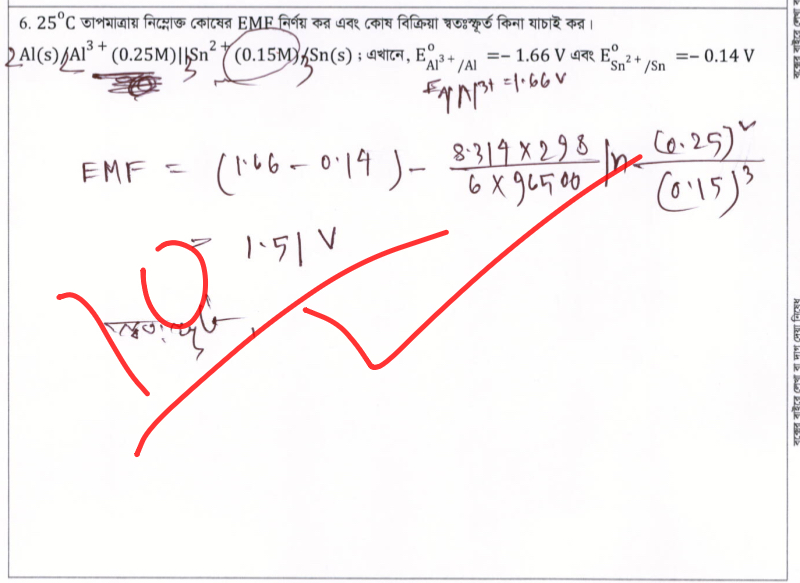 6. 25°C তাপমাত্রায় নিম্নোক্ত কোষের EMF নির্ণয় কর এবং কোষ বিক্রিয়া স্বতঃস্ফূর্ত কিনা যাচাই কর।
2Al(s)/2Al³⁺ (0.25M)||3Sn²⁺ (0.15M)/3Sn(s) ; এখানে, E°Al³⁺/Al = − 1.66 V এবং E°Sn²⁺/Sn = − 0.14 V
E Al/Al³⁺ = 1.66 V
EMF = (1.66 − 0.14) − 8.314 × 298 / 6 × 96500 ln (0.25)² / (0.15)³
= 1.51 V
স্বতঃস্ফূর্ত